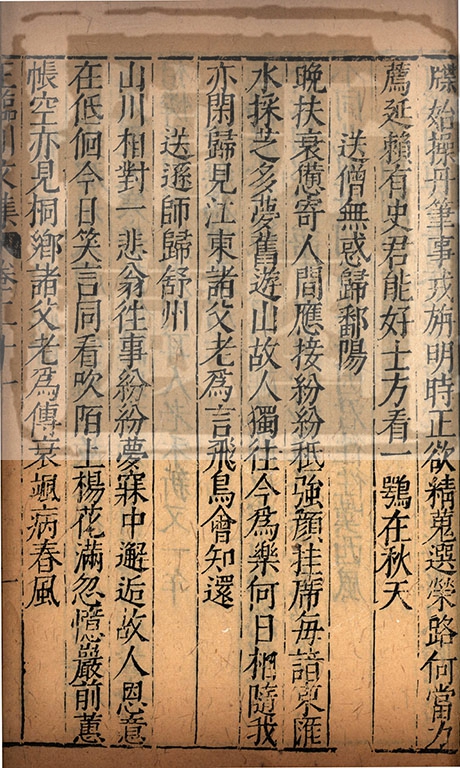 牒始操丹筆事戎旃明時正欲精蒐選榮路何當力
薦延賴有史君能好士方看一鶚在秋天
送僧無惑歸鄱陽
晚扶衰憊寄人間應接紛紛秪強顏挂席每諳東匯
水採芝多夢舊遊山故人獨往今為樂何日相隨我
亦閑歸見江東諸父老為言飛鳥會知還
送遜師歸舒州
山川相對一悲翁往事紛紛夢寐中邂逅故人恩意
在低佪今日笑言同看吹陌上楊花滿忽憶巖前蕙
帳空亦見桐鄉諸父老為傳衰颯病春風
王臨川文集 卷二十